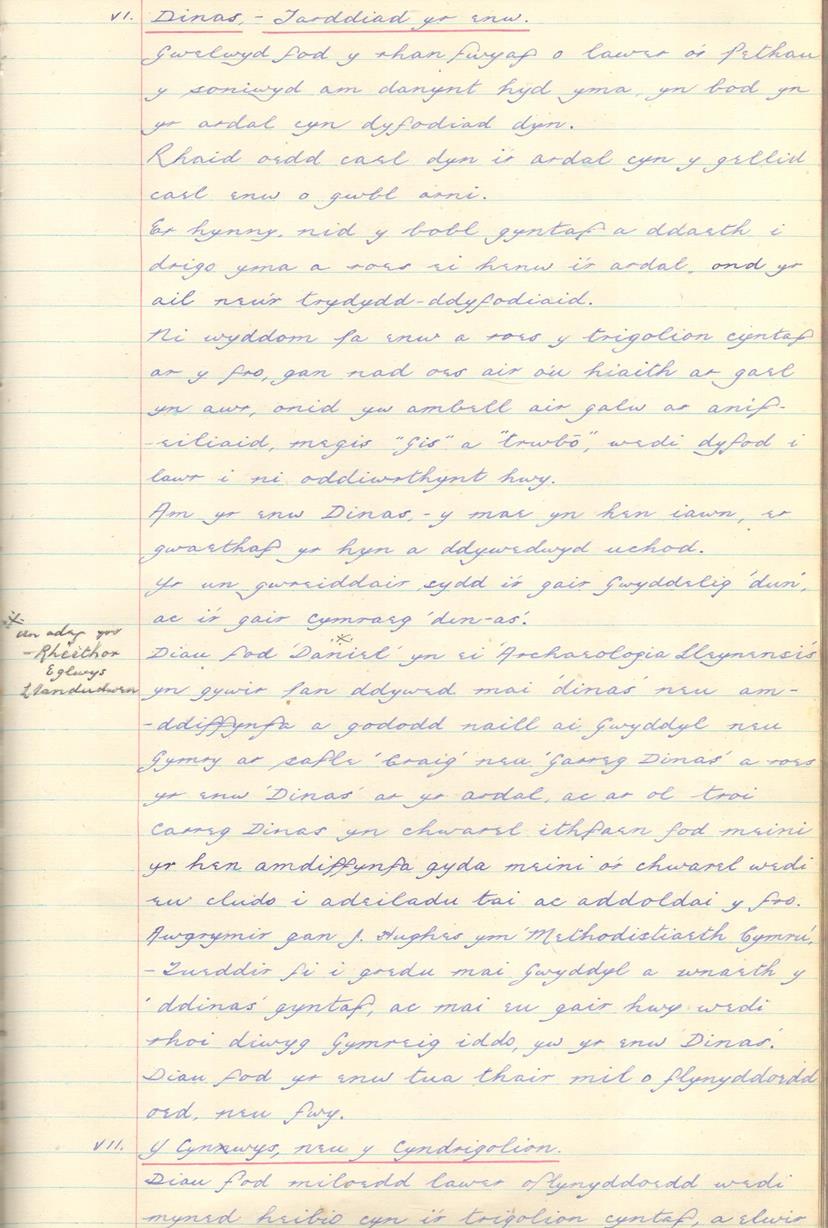 VI. Dinas, - Tarddiad yr enw.
Gwelwyd fod y rhan fwyaf o lawer o'r pethau
y soniwyd am danynt hyd yma, yn bod yn
yr ardal cyn dyfodiad dyn.
Rhaid oedd cael dyn i'r ardal cyn y gellid
cael enw o gwbl arni.
Er hynny, nid y bobl gyntaf a ddaeth i
drigo yma a roes ei henw i'r ardal, ond yr
ail neu'r trydydd-ddyfodiaid.
Ni wyddom fa enw a roes y trigolion cyntaf
ar y fro, gan nad oes air o'u hiaith ar gael
yn awr, onid yw ambell air galw ar anif-
-eiliaid, megis "Gis" a "trwbō", wedi dyfod i
lawr i ni oddiwrthynt hwy.
Am yr enw Dinas, - y mae yn hen iawn, er
gwaethaf yr hyn a ddywedwyd uchod.
Yr un gwreiddair sydd i'r gair Gwyddelig 'dun',
ac i'r gair Cymraeg 'din-as'.
Diau fod 'Daniel' yn ei 'Archaeologia Lleynensis'
yn gywir fan ddywed mai 'dinas' neu am-
-ddiffynfa a gododd naill ai Gwyddyl neu
Gymry ar safle 'Craig' neu 'Garreg Dinas' a roes
yr enw 'Dinas' ar yr ardal, ac ar ol troi
Carreg Dinas yn chwarel ithfaen fod meini
yr hen amdiffynfa gyda meini o'r chwarel wedi
eu cludo i adeiladu tai ac addoldai y fro.
Awgrymir gan J. Hughes ym 'Methodistiaeth Cymru',
- Tueddir fi i gredu mai Gwyddyl a wnaeth y
'ddinas' gyntaf, ac mai eu gair hwy wedi
rhoi diwyg Gymreig iddo, yw yr enw Dinas'.
Diau fod yr enw tua thair mil o flynyddoedd
oed, neu fwy.
VII. Y Cynnwys, neu y Cyndrigolion.
Diau fod miloedd lawer o flynyddoedd wedi
myned heibio cyn i'r trigolion cyntaf, a elwir
- Rheithor
Eglwys
Llandudwen